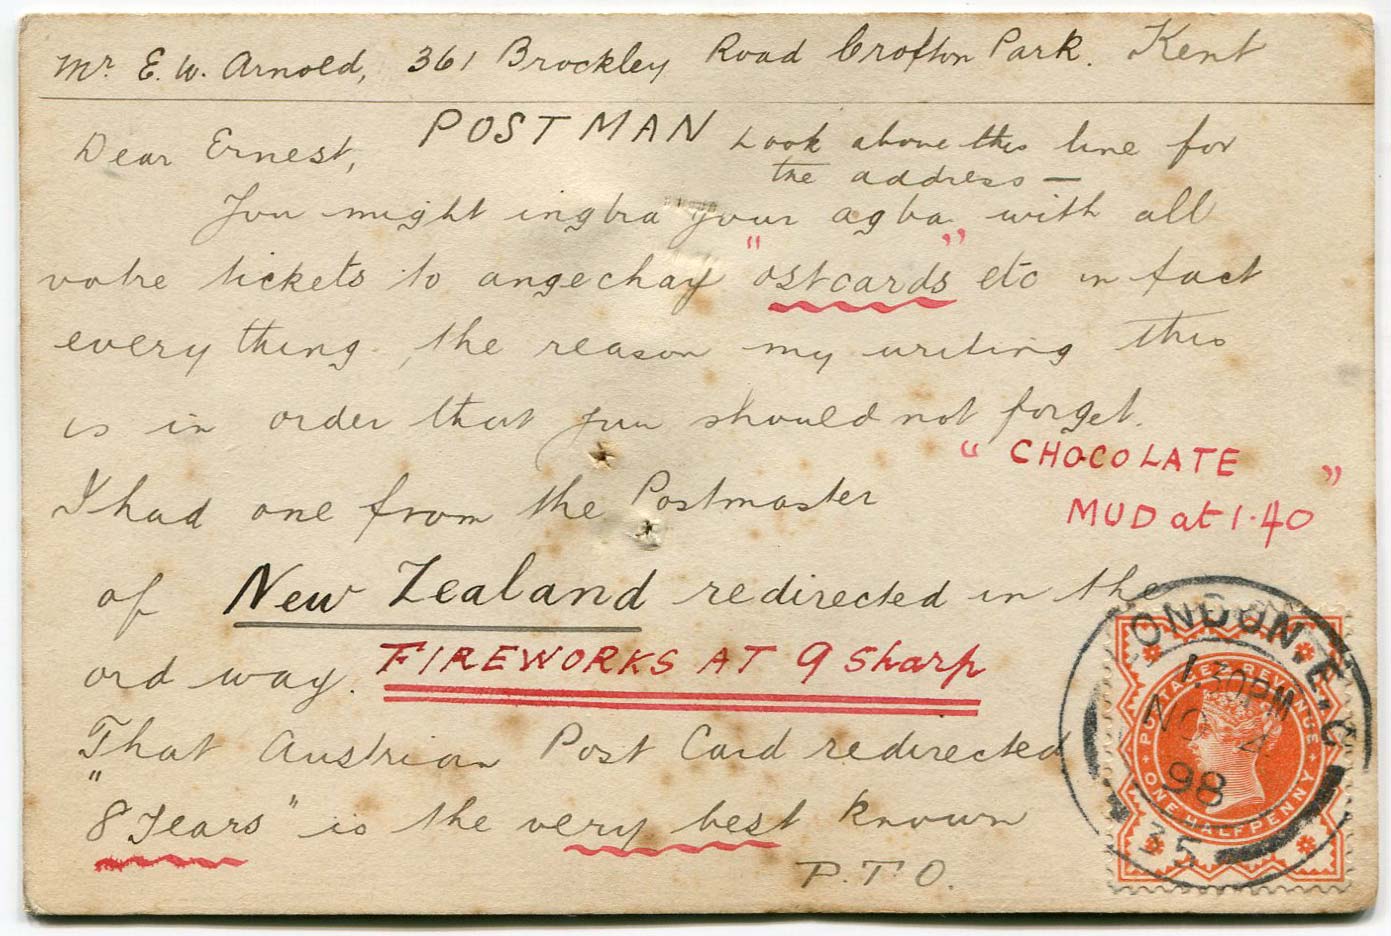 Mr E. W. Arnold, 361 Brockley Road Crofton Park. Kent
Dear Ernest, POSTMAN Look above this line for
the address —
You might ingbra your agba with all
votre tickets to angechay "ostcards" etc in fact
every thing, the reason my writing this
is in order that you should not forget.
"CHOCOLATE
MUD at 1.40"
I had one from the Postmaster
of New Zealand redirected in the
ord way. FIREWORKS AT 9 sharp
That Austrian Post Card redirected
"8 Years" is the very best known
P.T.O.
LONDON. E.C
1.30PM
NO 4
98
35
POSTAGE & REVENUE
ONE HALFPENNY